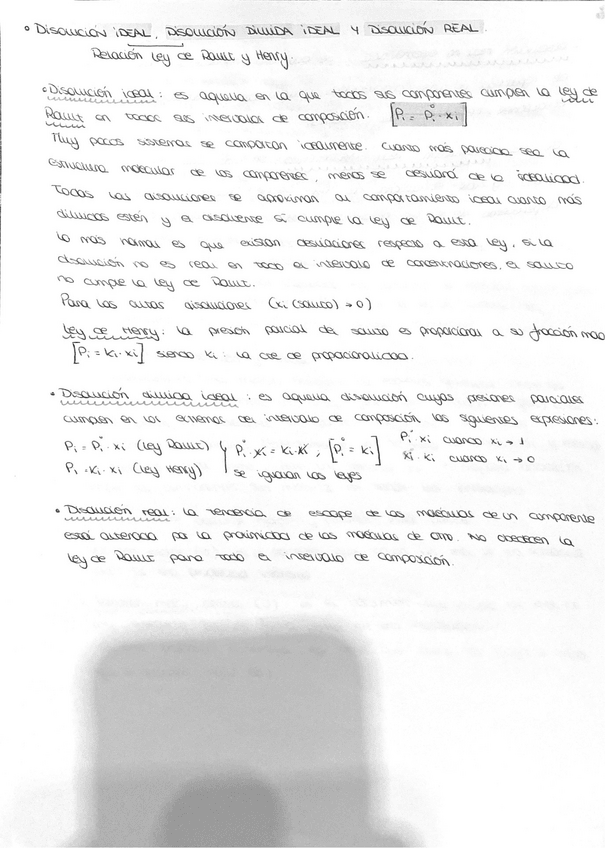 • DISOLUCIÓN IDEAL, DISOLUCIÓN DILUIDA IDEAL Y DISOLUCIÓN REAL.
Relación Ley de Rault y Henry.
• Disolución ideal: es aquella en la que todos sus componentes cumplen la Ley de
Rault en todos sus intervalos de composición. [Pi = Pi° · xi]
Muy pocos sistemas se comportan idealmente. Cuanto más parecida sea la
estructura molecular de los componentes, menos se desviará de la idealidad.
Todas las disoluciones se aproximan al comportamiento ideal cuanto más
diluidas estén y el disolvente si cumple la Ley de Rault.
Lo más normal es que existan desviaciones respecto a esta ley, si la
disolución no es real en todo el intervalo de concentraciones, el soluto
no cumple la Ley de Rault.
Para las otras disoluciones (xi (soluto) → 0)
Ley de Henry: la presión parcial del soluto es proporcional a su fracción mol
[Pi = Ki · xi] siendo Ki: la cte de proporcionalidad.
• Disolución diluida ideal: es aquella disolución cuyas presiones parciales
cumplen en los extremos del intervalo de composición las siguientes expresiones:
Pi = Pi° · xi (Ley Rault) } Pi° · xi = Ki · xi, [Pi° = Ki] Pi° · xi cuando xi → 1
Pi = Ki · xi (Ley Henry) se igualan las leyes xi · Ki cuando xi → 0
• Disolución real: la tendencia de escape de las moléculas de un componente
está alterada por la proximidad de las moléculas de otro. No obedecen la
Ley de Rault para todo el intervalo de composición.